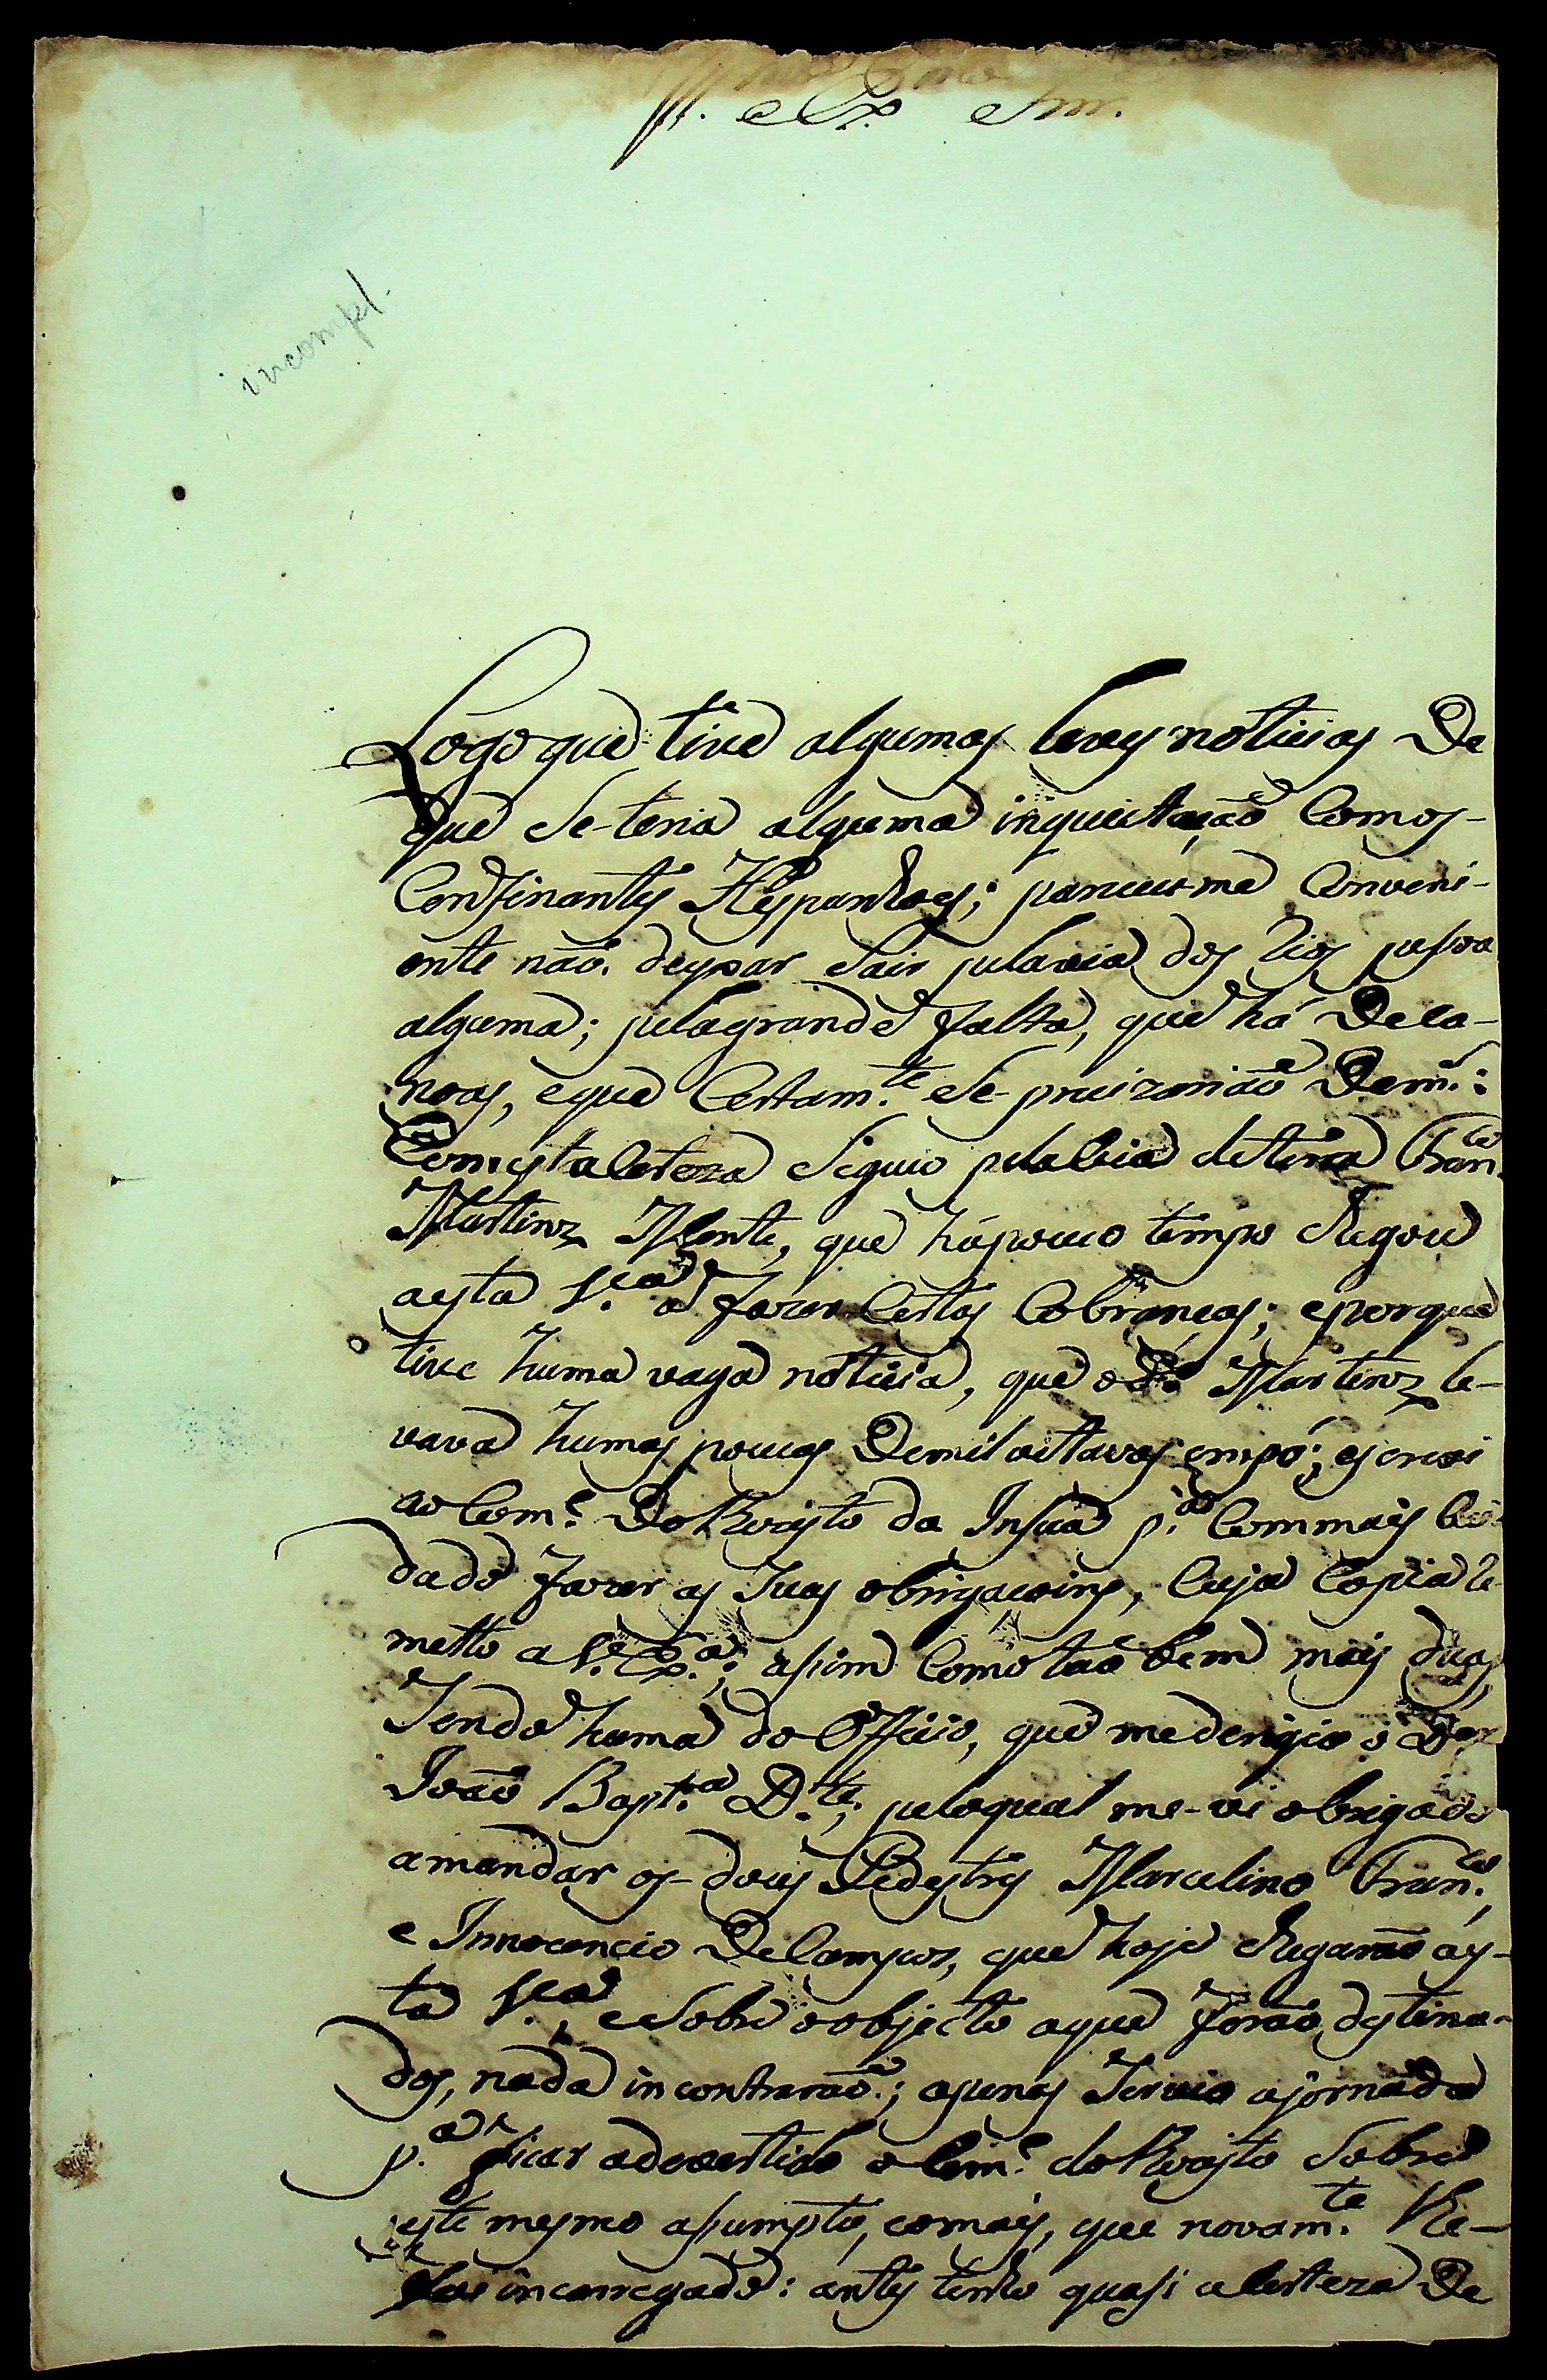 Ill. Ex. Snr.
incompl.
Logo que tive algumas leves noticias De
que se-teria alguma inquietação Com os-
Confinantes Hespanhoes; pareceu-me Conveni-
ente não deyxar Sair pela via dos Rios pessoa
alguma; pela grande falta, que há De ca-
noas, e que Certam.te Se-precizarião Dem.:
Com esta Certeza Seguio pela via de terra Fran.co
Martinz Monte, que há pouco tempo Chegou
a esta V.ª a fazer Certas Cobranças; e porque
tive huma vaga noticia, que o d.º Martinz le-
vava humas poucas De mil oitavas em pó; escrevi
ao Com.e Do Rezisto da Insua p.ª Com mais Cui-
dado fazer as Suas obrigaçoins, Cuja Copia Re-
metto a V. Ex.ª; assim Como tão bem mais duas,
Sendo huma do Officio, que me derigio o D.or
João Bapt.ª D.te; pelo qual me-vi obrigado
a mandar os-dous Pedestres Marcelino Fran.co,
e Innocencio De Campos, que hoje Chegarão a es-
ta V.ª, e Sobre o objecto a que forão destina-
dos, nada incontrarão; apenas Servio a jornada
p.ª ficar advertido o Com.e do Rezisto Sobre
este mesmo assumpto, como is, que novam.te lhe-
incarregado: antes tenho quasi a Certeza De